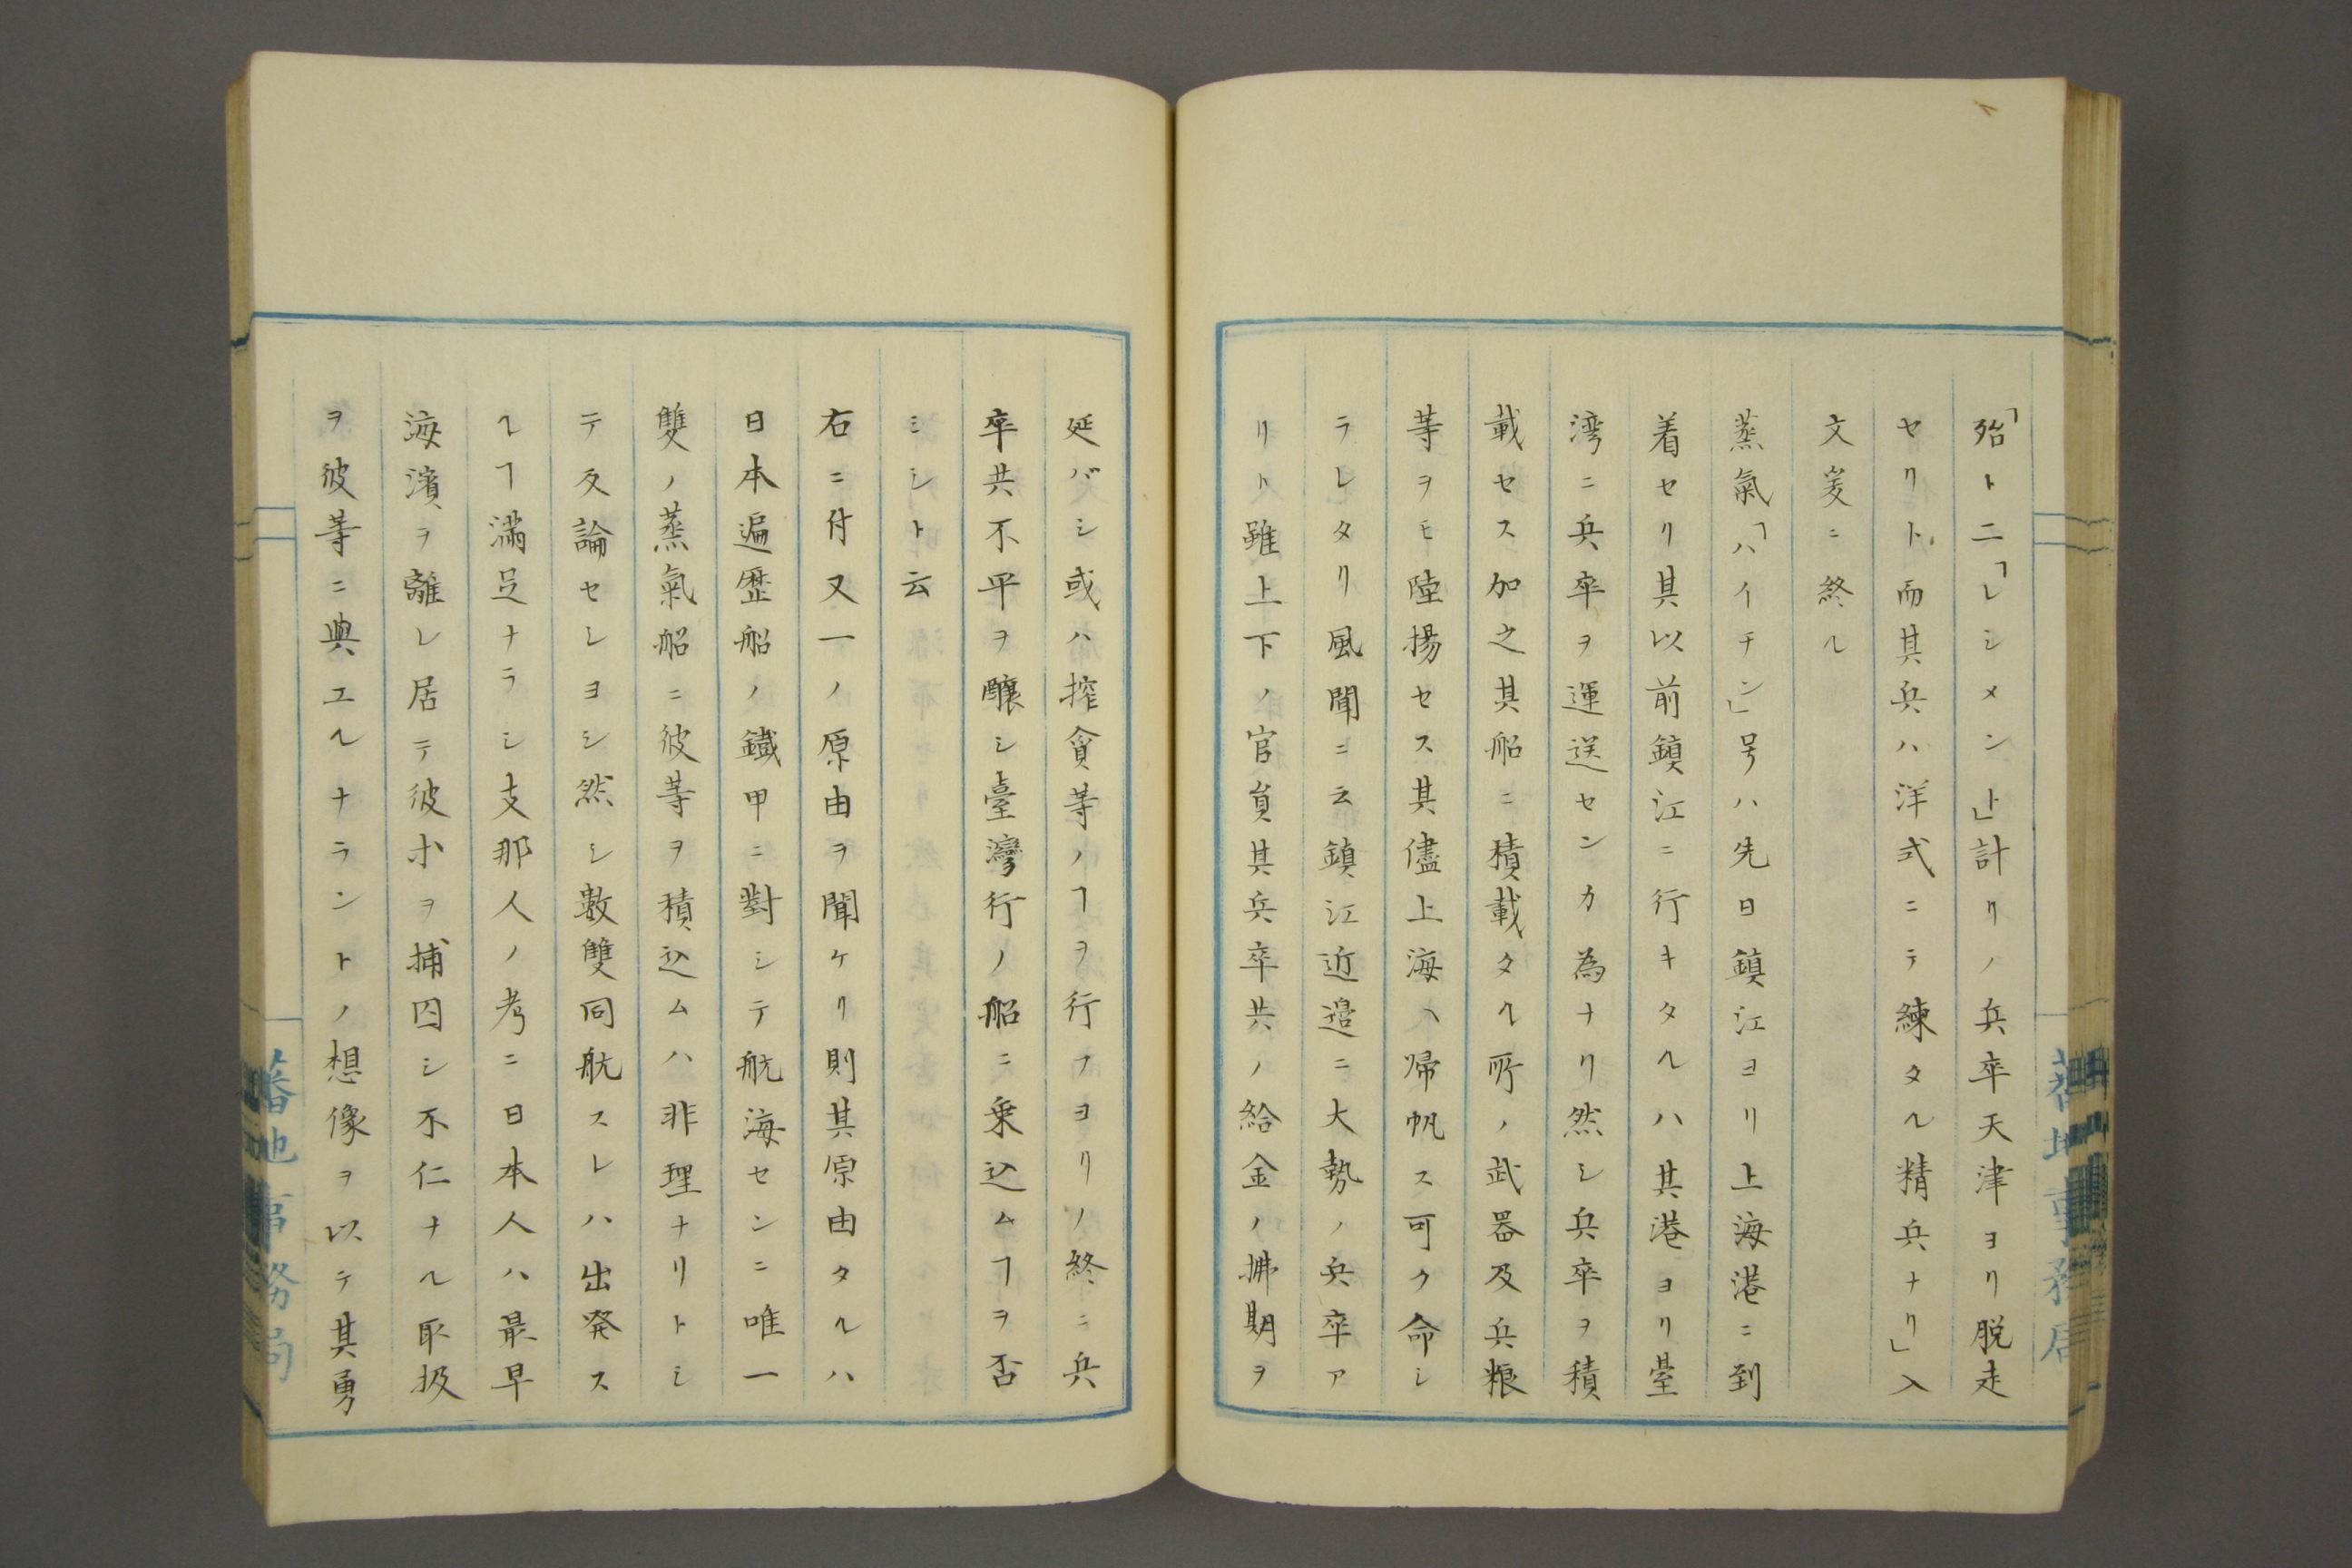 「殆ト二「レシメント」計リノ兵卒天津ヨリ脱走
セリト而其兵ハ洋式ニテ練タル精兵ナリ」入
文爰ニ終ル
蒸氣「ハイチン」号ハ先日鎮江ヨリ上海港ニ到
着セリ其以前鎮江ニ行キタルハ其港ヨリ臺
湾ニ兵卒ヲ運送センカ為ナリ然シ兵卒ヲ積
載セス加之其船ニ積載タル所ノ武器及兵粮
等ヲモ陸揚セス其儘上海ヘ帰帆ス可ク命シ
ラレタリ風聞ニ云鎮江近邉ニ大勢ノ兵卒ア
リト雖上下ノ官負其兵卒共ノ給金ノ拂期ヲ
延バシ或ハ搾貪等ノヿヲ行フヨリノ終ニ兵
卒共不平ヲ醸シ臺灣行ノ船ニ乗込ムヿヲ否
ミシト云
右ニ付又一ノ原由ヲ聞ケリ則其原由タルハ
日本遍歴船ノ鐵甲ニ對シテ航海センニ唯一
雙ノ蒸氣船ニ彼等ヲ積込ムハ非理ナリトシ
テ反論セシヨシ然シ數雙同航スレハ出発ス
ルヿ満足ナラシ支那人ノ考ニ日本人ハ最早
海濱ヲ離レ居テ彼ホヲ捕囚シ不仁ナル取扱
ヲ彼等ニ與エルナラントノ想像ヲ以テ其勇
蕃地事務局
蕃地事務局